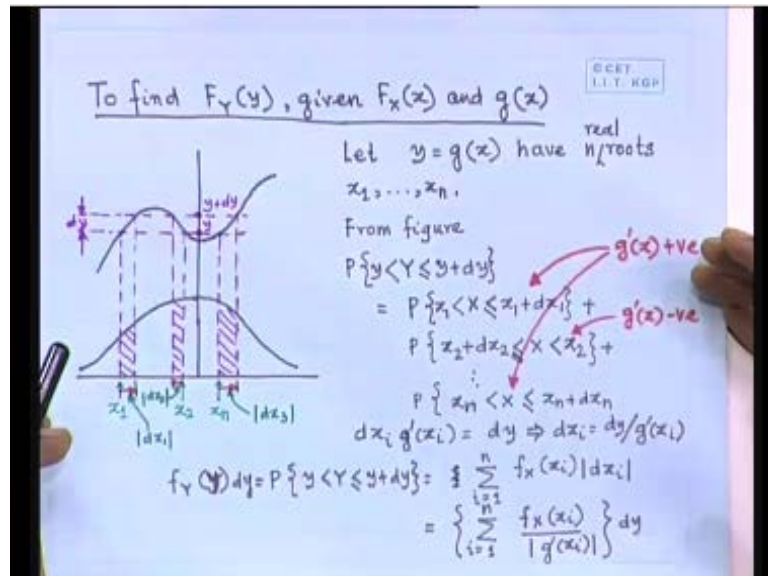 © CET
I.I.T. KGP
To find F_Y(y), given F_X(x) and g(x)
Let y = g(x) have n real roots
x₁, ..., xₙ.
From figure
P{y < Y ≤ y+dy}
= P{x₁ < X ≤ x₁+dx₁} +
P{x₂+dx₂ ≤ X < x₂} +
⋮
P{xₙ < X ≤ xₙ+dxₙ
g'(x) +ve
g'(x) -ve
dxᵢ g'(xᵢ) = dy ⇒ dxᵢ = dy/g'(xᵢ)
f_Y(y) dy = P{y < Y ≤ y+dy} = Σ_{i=1}^{n} f_X(xᵢ)|dxᵢ|
= {Σ_{i=1}^{n} f_X(xᵢ)/|g'(xᵢ)|} dy
y+dy
x₁
x₂
xₙ
|dx₁|
|dx₃|